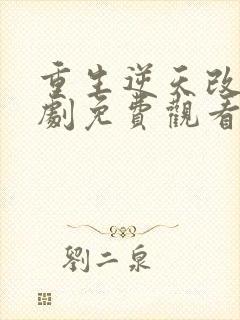 重生逆天改
劇免費觀看
劉二泉